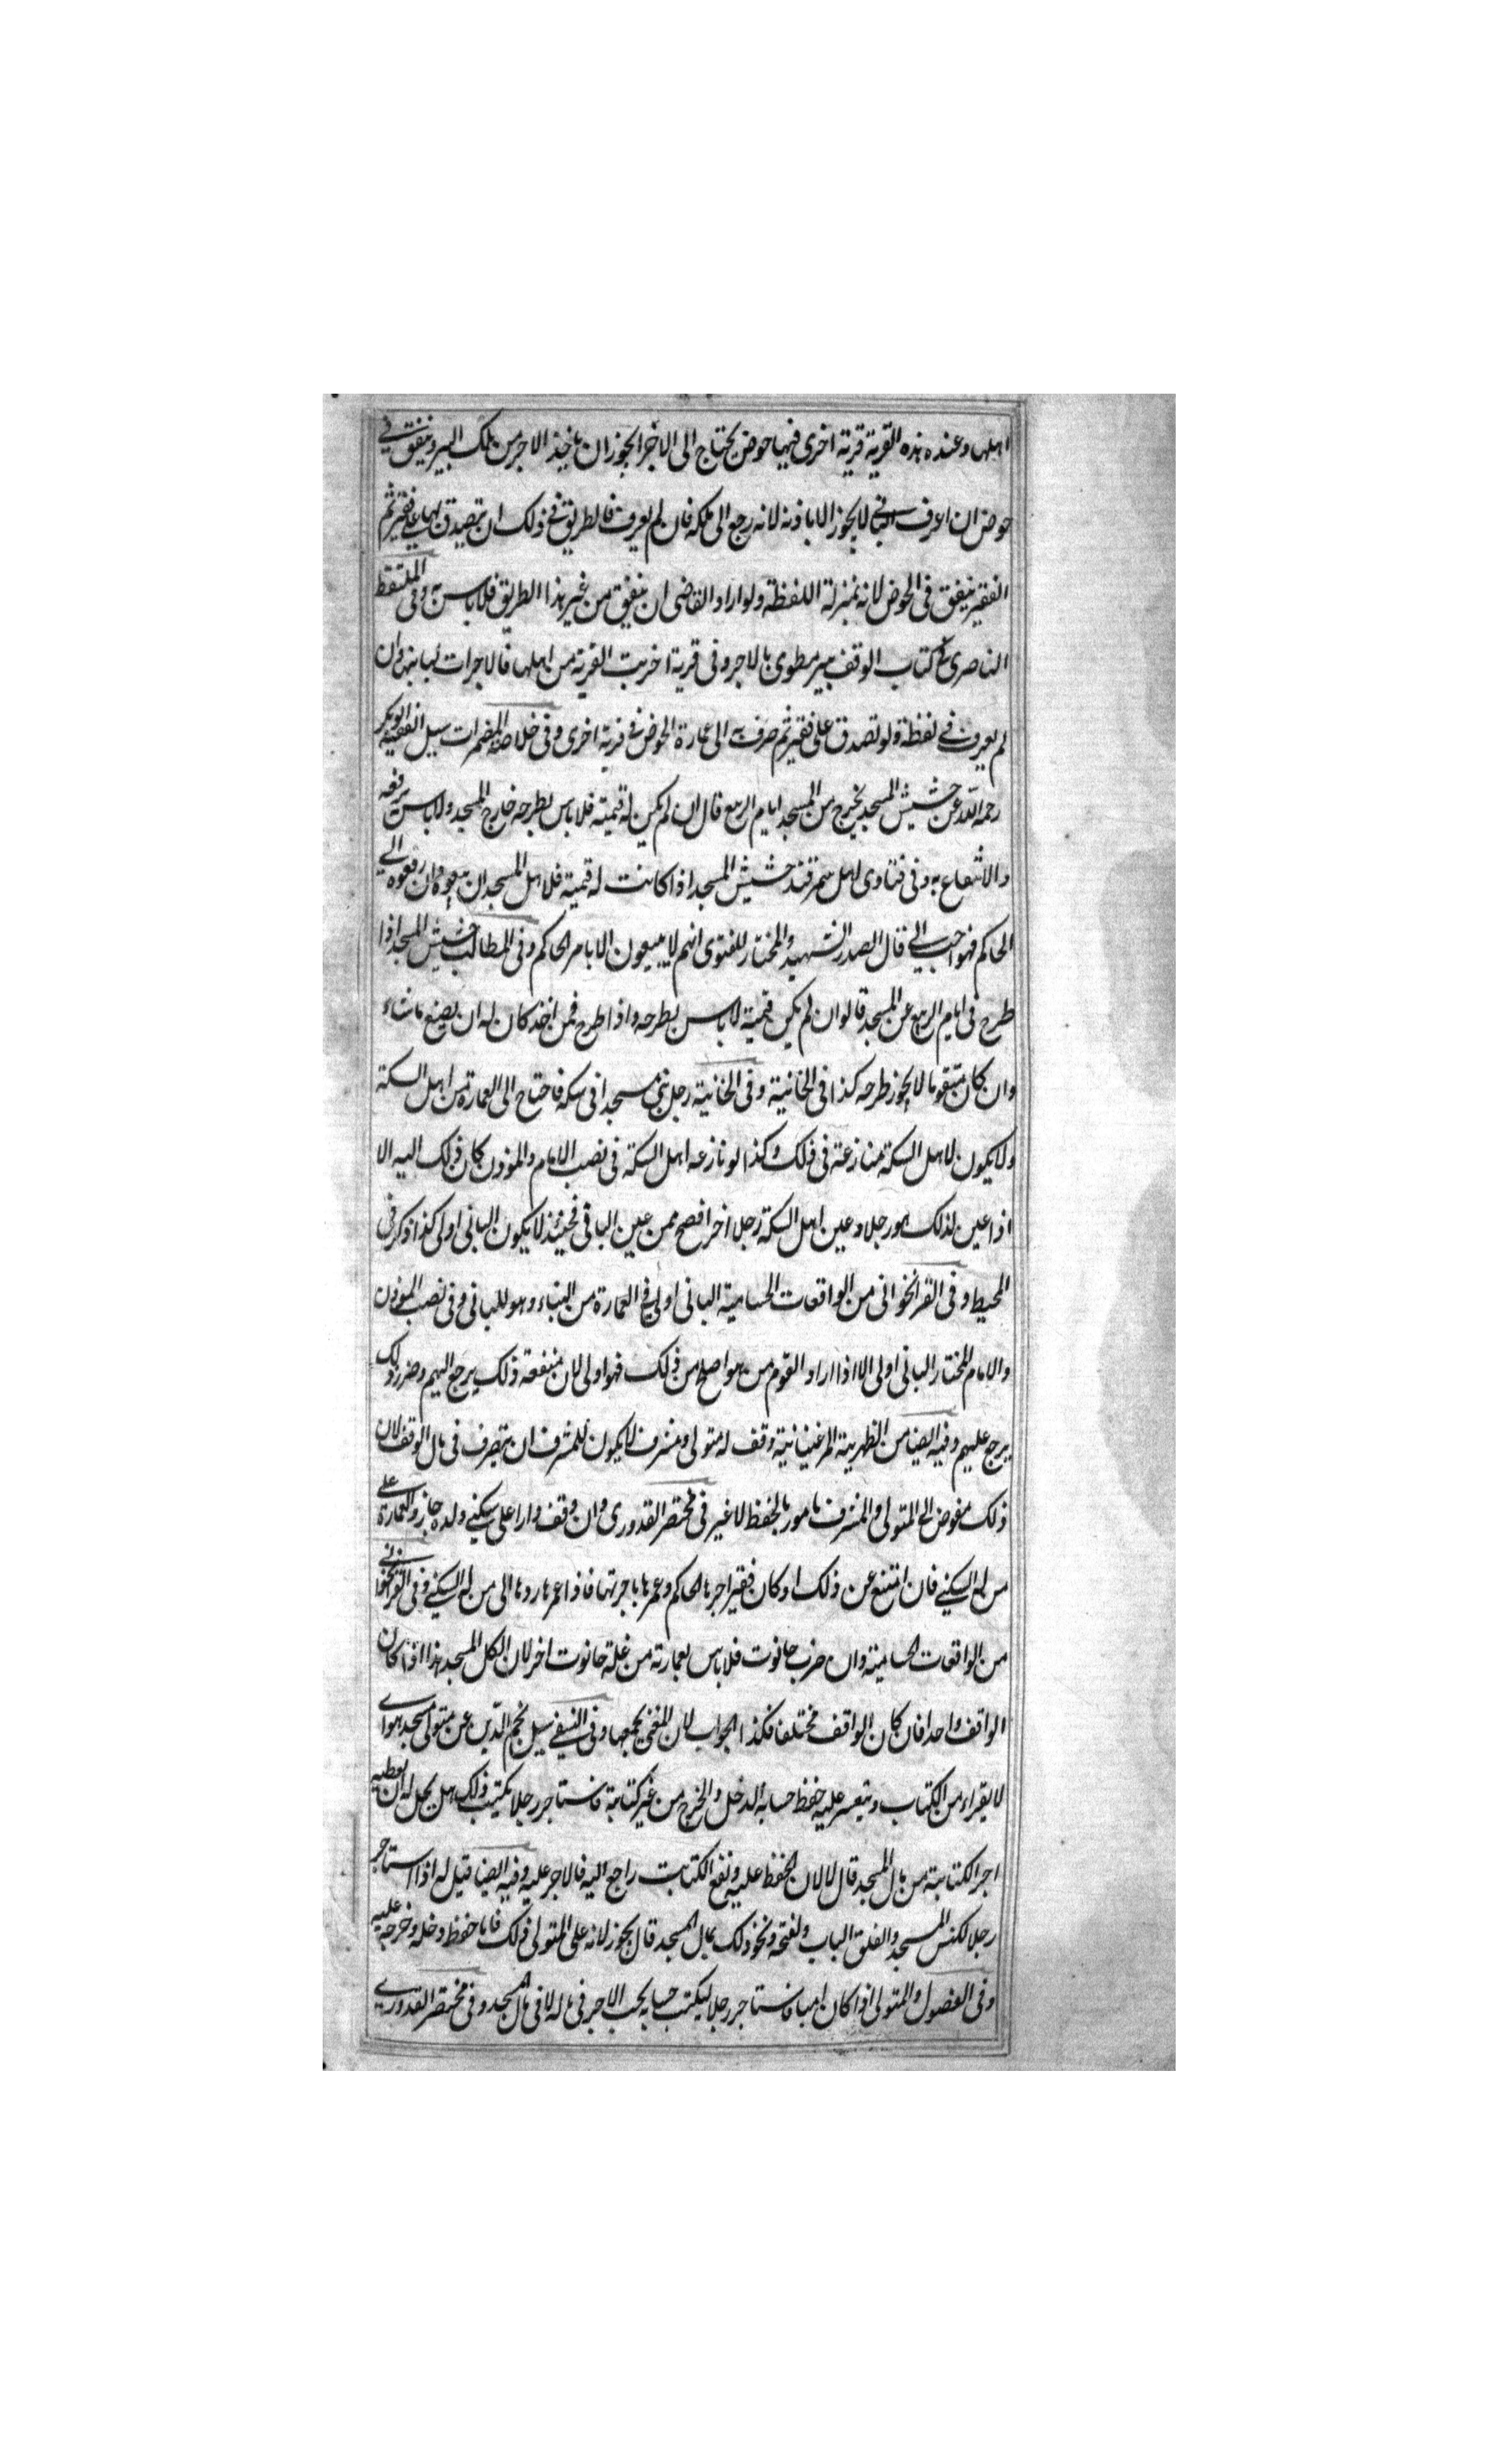 اهلها وعنده هذه القرية قرية اخرى فيها حوض يحتاج الى الاجر ايجوز ان ياخذ الاجر من تلك البير وينفق في
حوض ان اعرف الباني لا يجوز الا باذنه لانه رجع الى ملكه فان لم يعرف فالطريق في ذلك ان يتصدق بها على فقير ثم
الفقير ينفق فى الحوض لانه بمنزلة اللقطة ولو اراد القاضى ان ينفق من غير هذا الطريق فلا باس به وفى الملتقط
الناصرى في كتاب الوقف بير مطوى بالاجر وفى قرية اخربت القرية من اهلها فالاجرات لبانيه وان
لم يعرف فهي لقطة ولو تصدق على فقير ثم صرف به الى عمارة الحوض في قرية اخرى وفى خلاصة المضمرات سيل الفقيه ابو بكر
رحمه الله عن حشيش المسجد يخرج من المسجد ايام الربيع قال ان لم يكن له قيمة فلا باس بطرحه خارج المسجد ولا باس برفعه
والانتفاع به وفى فتاوى اهل سمرقند حشيش المسجد اذا كانت له قيمة فلاهل المسجد ان يبيعوه وان رفعوه الى
الحاكم فهو احب الي قال الصدر الشهيد والمختار للفتوى انهم لا يبيعون الا بامر الحاكم وفى المطالب حشيش المسجد اذا
طرح فى ايام الربيع عن المسجد قالوا ان لم يكن قيمة لا باس بطرحه واذا طرح فمن اخذ كان له ان يصنع ما شاء
وان كان متقوما لا يجوز طرحه كذا فى الخانية وفى الخانية رجل بنى مسجدا فى سكة فاحتاج الى العمارة من اهل السكة
ولا يكون لاهل السكة منازعة فى ذلك وكذا لو نازعه اهل السكة فى نصب الامام والموذن كان ذلك اليه الا
اذا عين لذلك هو رجلا وعين اهل السكة رجلا اخر افصح ممن عين البانى فحينئذ لا يكون البانى اولى كذا ذكر فى
المحيط وفى القراخوانى من الواقعات الحسامية البانى اولى في العمارة من البناء وهو للبانى وفى نصب الموذن
والامام المختار البانى اولى الا اذا اراد القوم من هو اصلح من ذلك فهو اولى لان منفعة ذلك يرجع اليهم وضرر ذلك
يرجع عليهم وفيه ايضا من الظهرية المرغينانية وقف له متولى ومشرف لا يكون للمشرف ان يتصرف فى مال الوقف لان
ذلك مفوض الى المتولى والمشرف مامور بالحفظ لا غير فى مختصر القدورى وان وقف دارا على سكنى ولده جاز والعمارة على
من له السكنى فان امتنع عن ذلك او كان فقيرا اجرها الحاكم وعمرها باجرتها فاذا عمر ها ردها الى من له السكنى وفى القراخوانى
من الواقعات الحسامية وان خرب حانوت فلا باس بعمارته من غلة حانوت اخر لان الكل المسجد هذا اذا كان
الواقف واحدا فان كان الواقف مختلفا فكذا الجواب لان المعنى يجمعها وفى النسفى سيل نجم الدين عن متولى مسجد هو امي
لا يقراء من الكتاب ويتعسر عليه حفظ حسابه الدخل والخرج من غير كتابة فاستاجر رجلا يكتب ذلك هل يحل له ان يعطيه
اجر الكتابة من مال المسجد قال لا لان الحفظ عليه ونفع الكتابت راجع اليه فالاجر عليه وفيه ايضا قيل له اذا استاجر
رجلا لكنس المسجد والغلق الباب ولفتحه ونحو ذلك بمال المسجد قال يجوز لانه على المتولى ذلك فاما حفظ دخله وخرجه عليه
وفى الفصول والمتولى اذا كان اميا فاستاجر رجلا ليكتب حسابه يجب الاجر فى ماله لا فى مال المسجد وفى مختصر القدورى